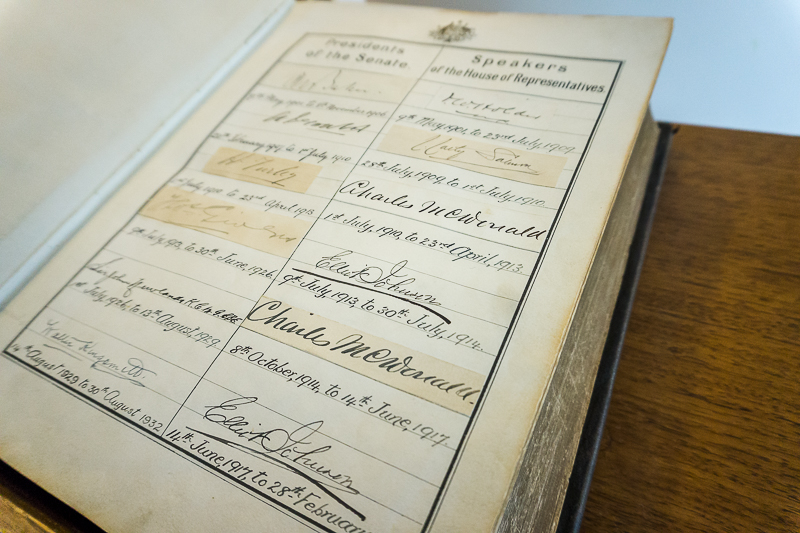 Presidents
of the Senate.
May, 1901, to December 1906
February 1907, to July 1910
H Turley
July 1910 to 23rd April 1913
9th July, 1913, to 30th June, 1926.
1st July, 1926, to 13th August, 1929.
Walter Kingsmill
14th August 1929 to 30th August 1932
Speakers
of the House of Representatives.
9th May, 1901, to 23rd July, 1909.
Carty Salmon
28th July, 1909, to 1st July, 1910.
Charles McDonald
1st July, 1910, to 23rd April, 1913.
Elliot Johnson
9th July, 1913, to 30th July, 1914.
Charles McDonald.
8th October, 1914, to 14th June, 1917.
Elliot Johnson
14th June, 1917, to 28th February